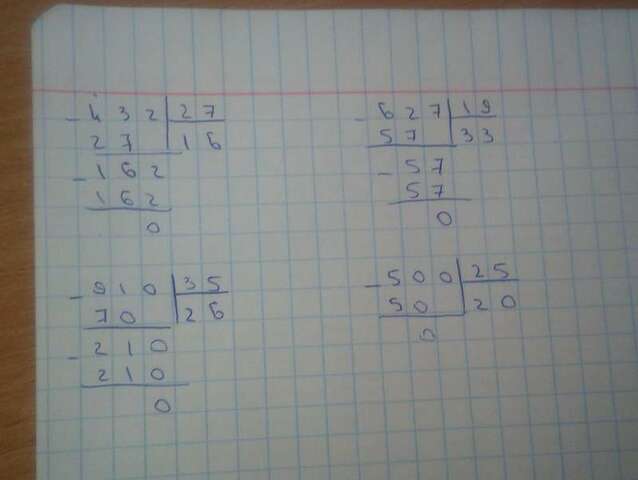 - 432 | 27
27 | 16
- 162
162
0
- 627 | 19
57 | 33
- 57
57
0
- 910 | 35
70 | 26
- 210
210
0
- 500 | 25
50 | 20
0